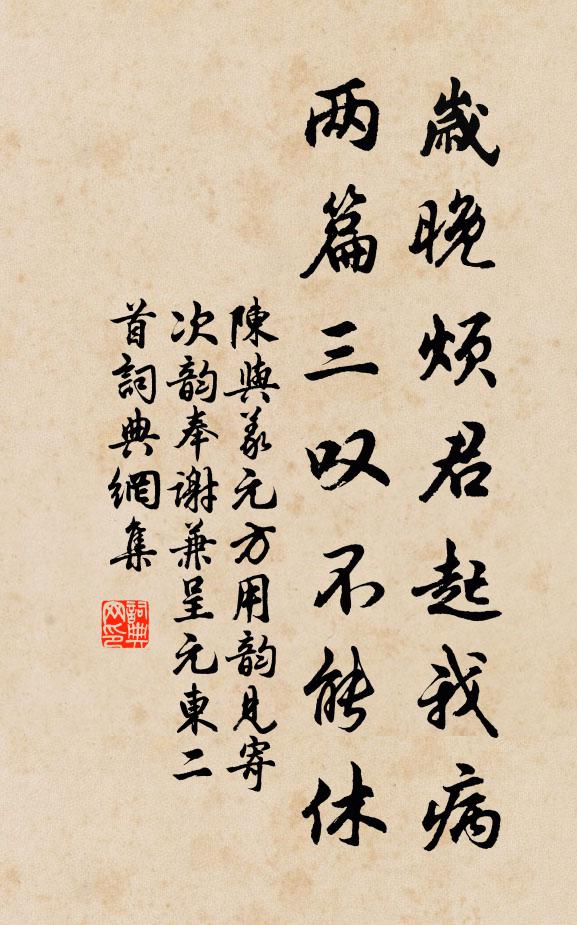 歲晚煩君起我病
两篇三叹不能休
陳與义元方用韵見寄
次韵奉谢兼呈元東二
首詞典網集
詞典网印